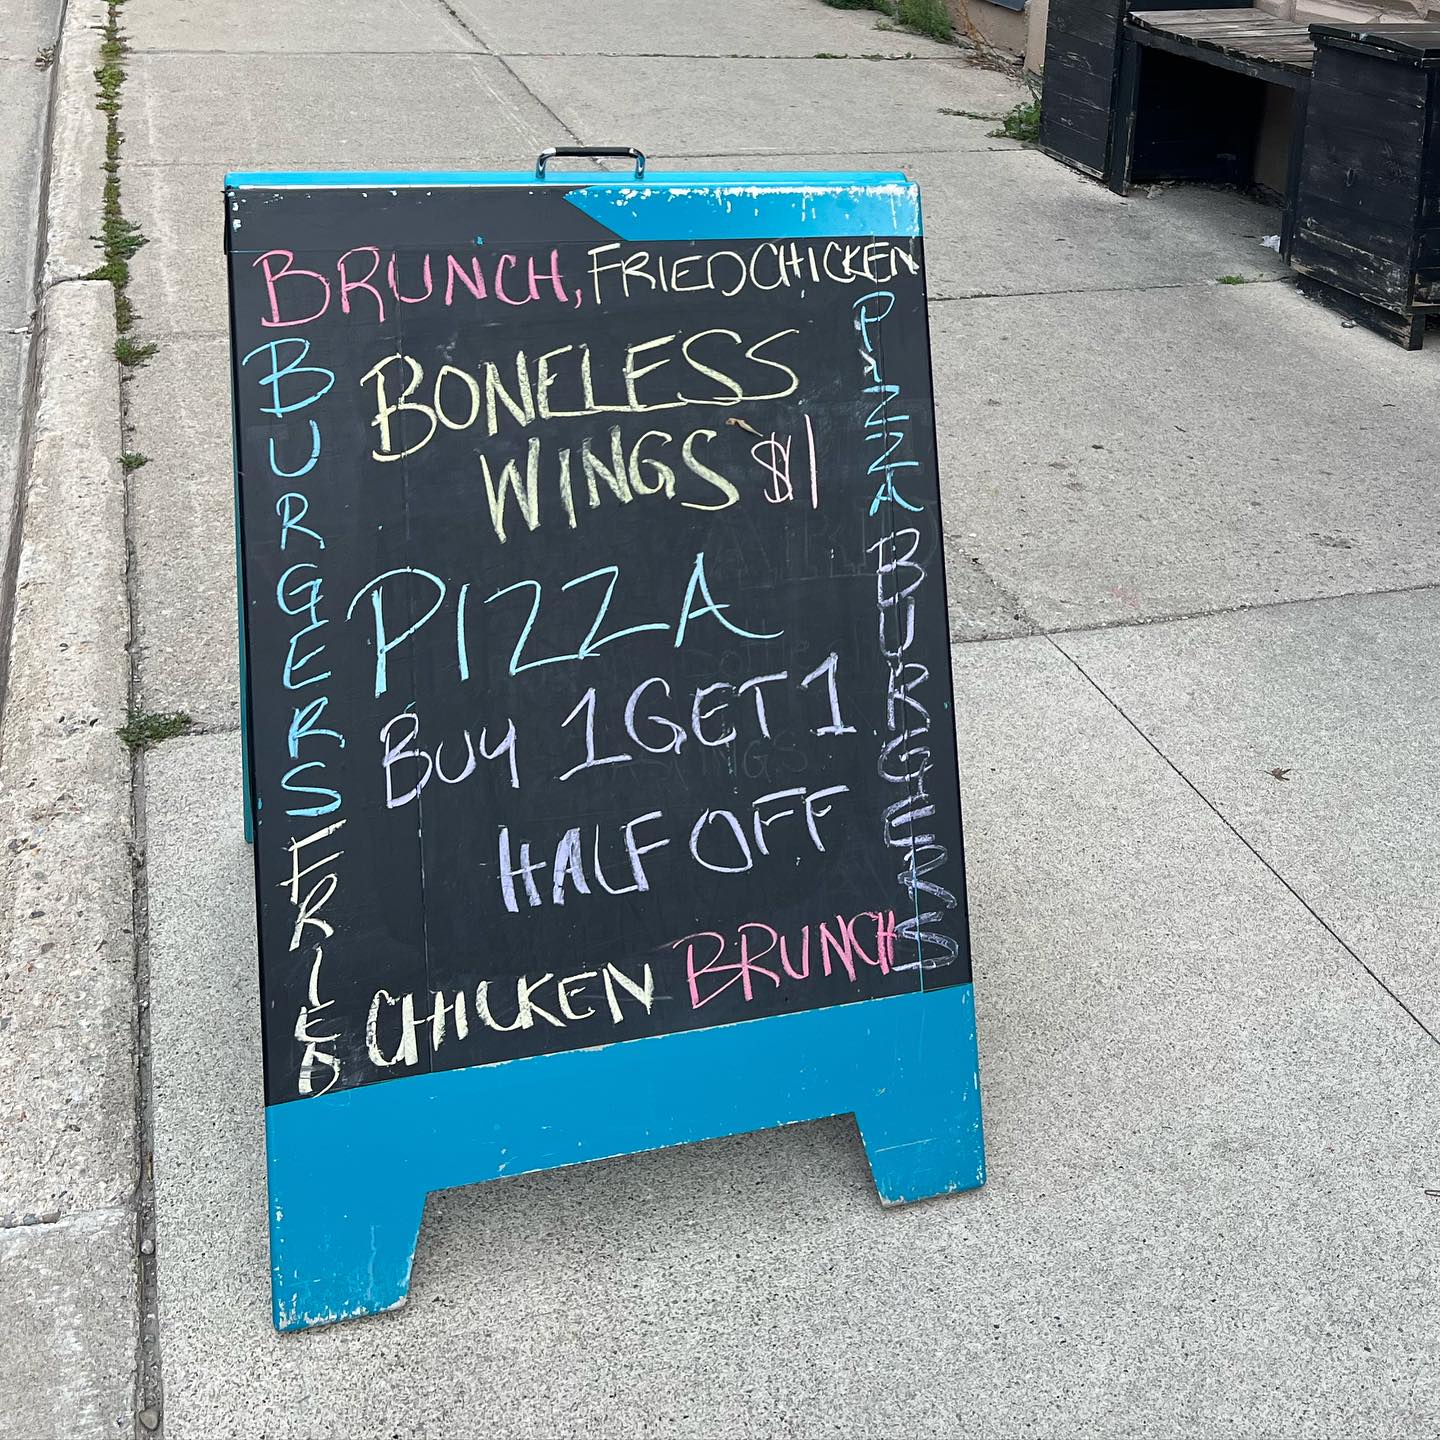 BRUNCH, FRIED CHICKEN
BONELESS
WINGS $1
PIZZA
BUY 1 GET 1
HALF OFF
CHICKEN BRUNCH
BURGERS
FRIED
PIZZA
BURGERS